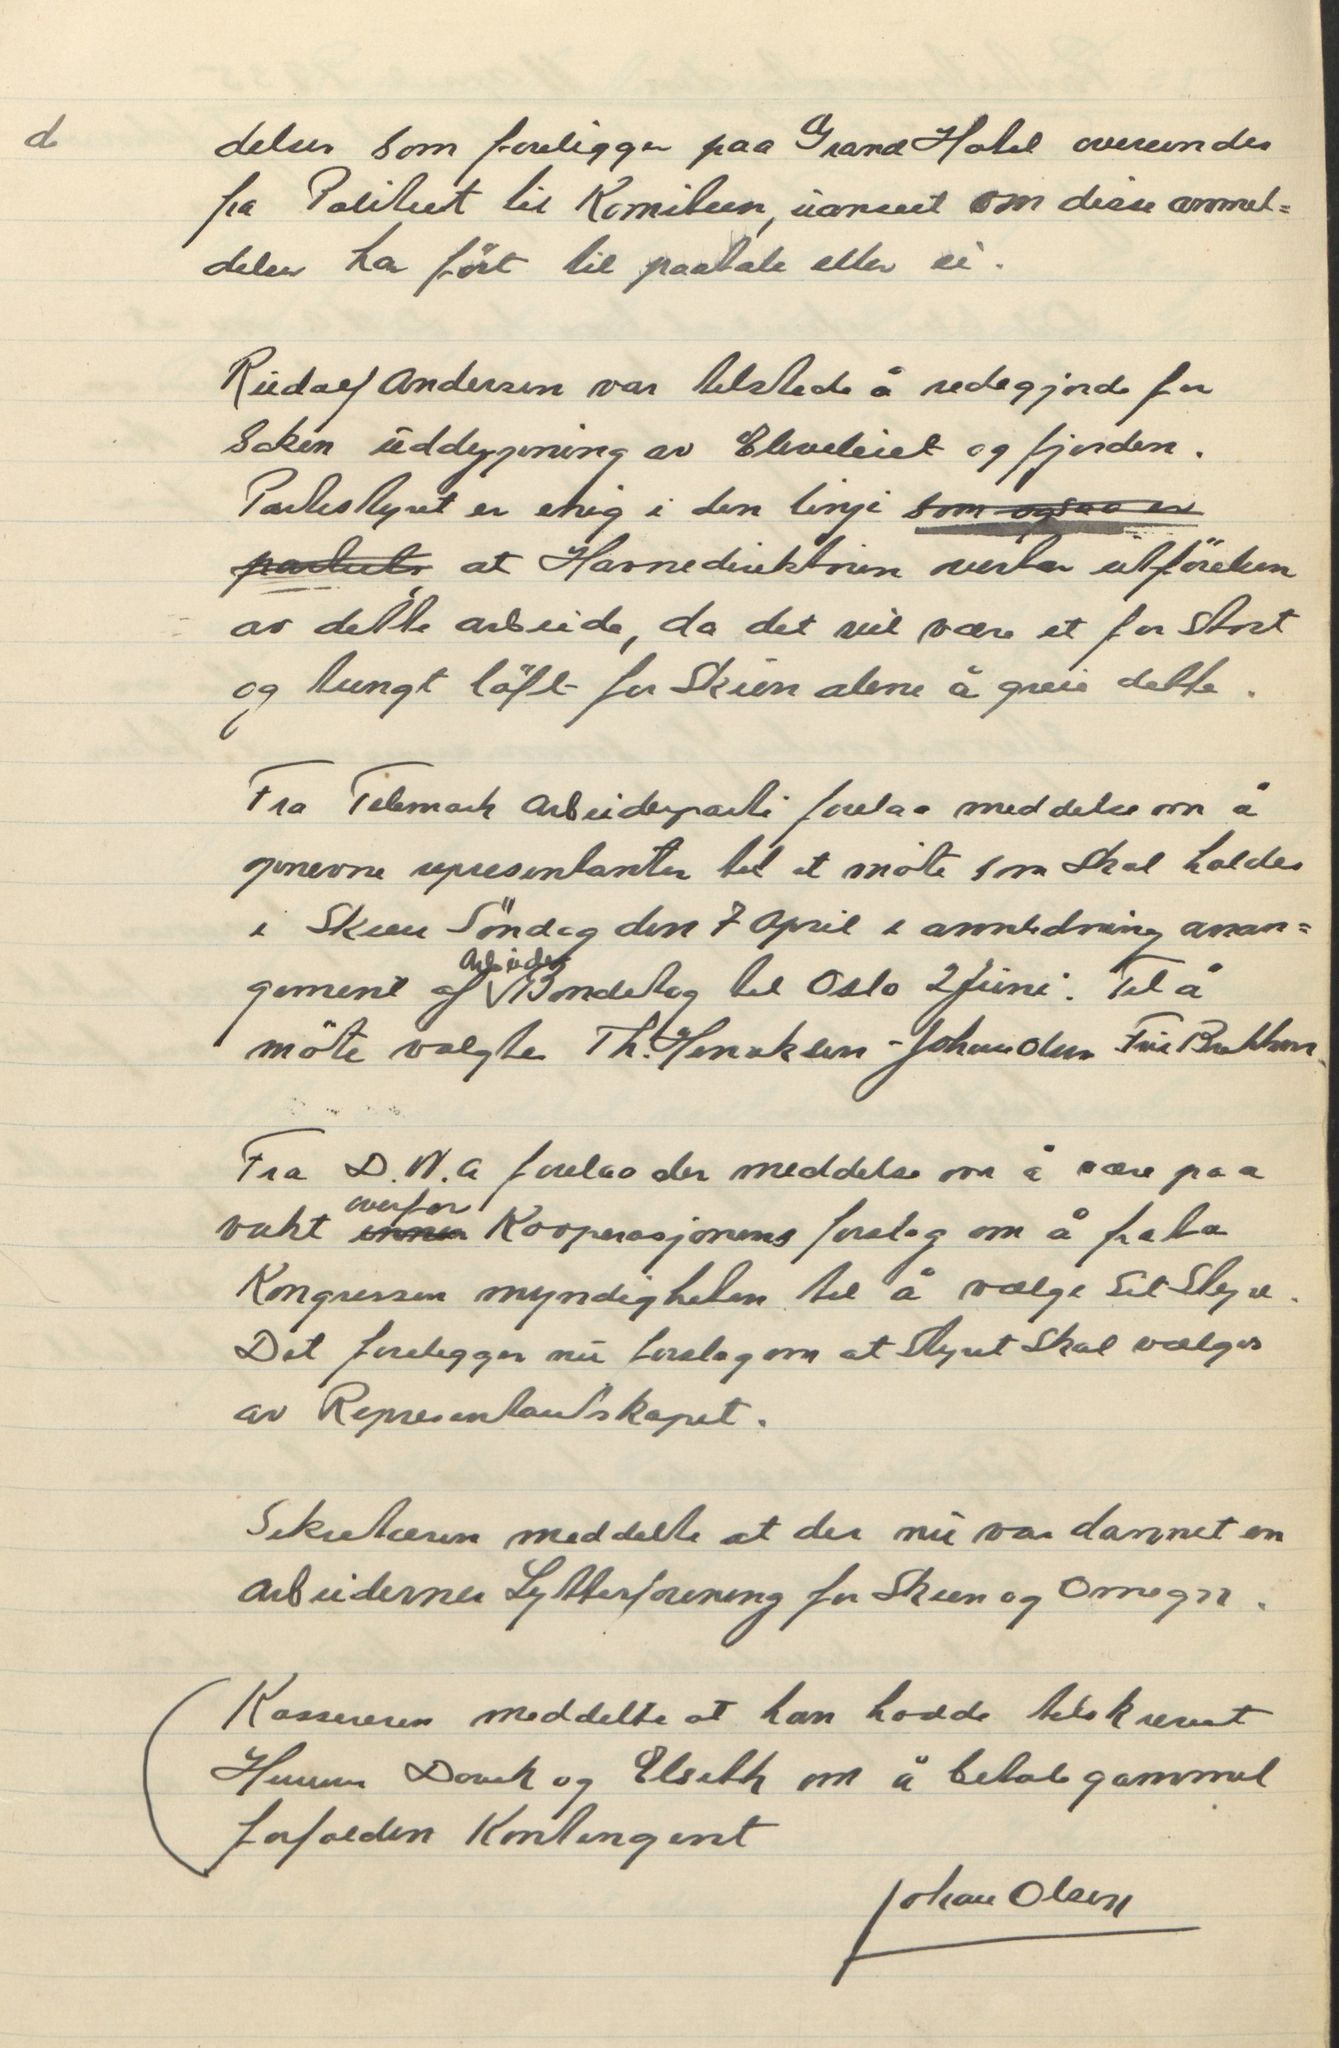 de
delser som foreligger paa Grand Hotel oversendes
fra Politiet til Komiteen, uanset om disse anmel=
delser har fört til paatale eller ei.
Rudolf Andersen var tilstede å redegjorde for
Saken uddypning av Elveleiet og fjorden.
Partistyret er enig i den linje som ogsaa er
partiets at Havnedirektøren verter utförelsen
av dette arbeide, da det vil være et for stort
og tungt löft for Skien alene å greie dette.
Fra Telemark Arbeiderparti forelaa meddelse om å
opnevne representanter til et möte som skal holdes
i Skien Söndag den 7 April i annledning arran=
gement af Arbeider Bondetog til Oslo 2 Juni. Til å
möte valgtes Th. Henriksen - Johan Olsen Fru Brekken
Fra D.N.A forelaa der meddelse om å være paa
vakt overfor Kooperasjonens forslag om å frata
Kongressen myndigheten til å vælge Sit Styre.
Det foreligger nu forslag om at Styret Skal vælges
av Representantskapet.
Sekretæren meddelte at der nu var dannet en
Arbeidernes Lytterforening for Skien og Omegn.
Kassereren meddelte at han hadde tilskrevet
Herrer og Elseth om å betale gammel
forfalden Kontingent
Johan Olsen